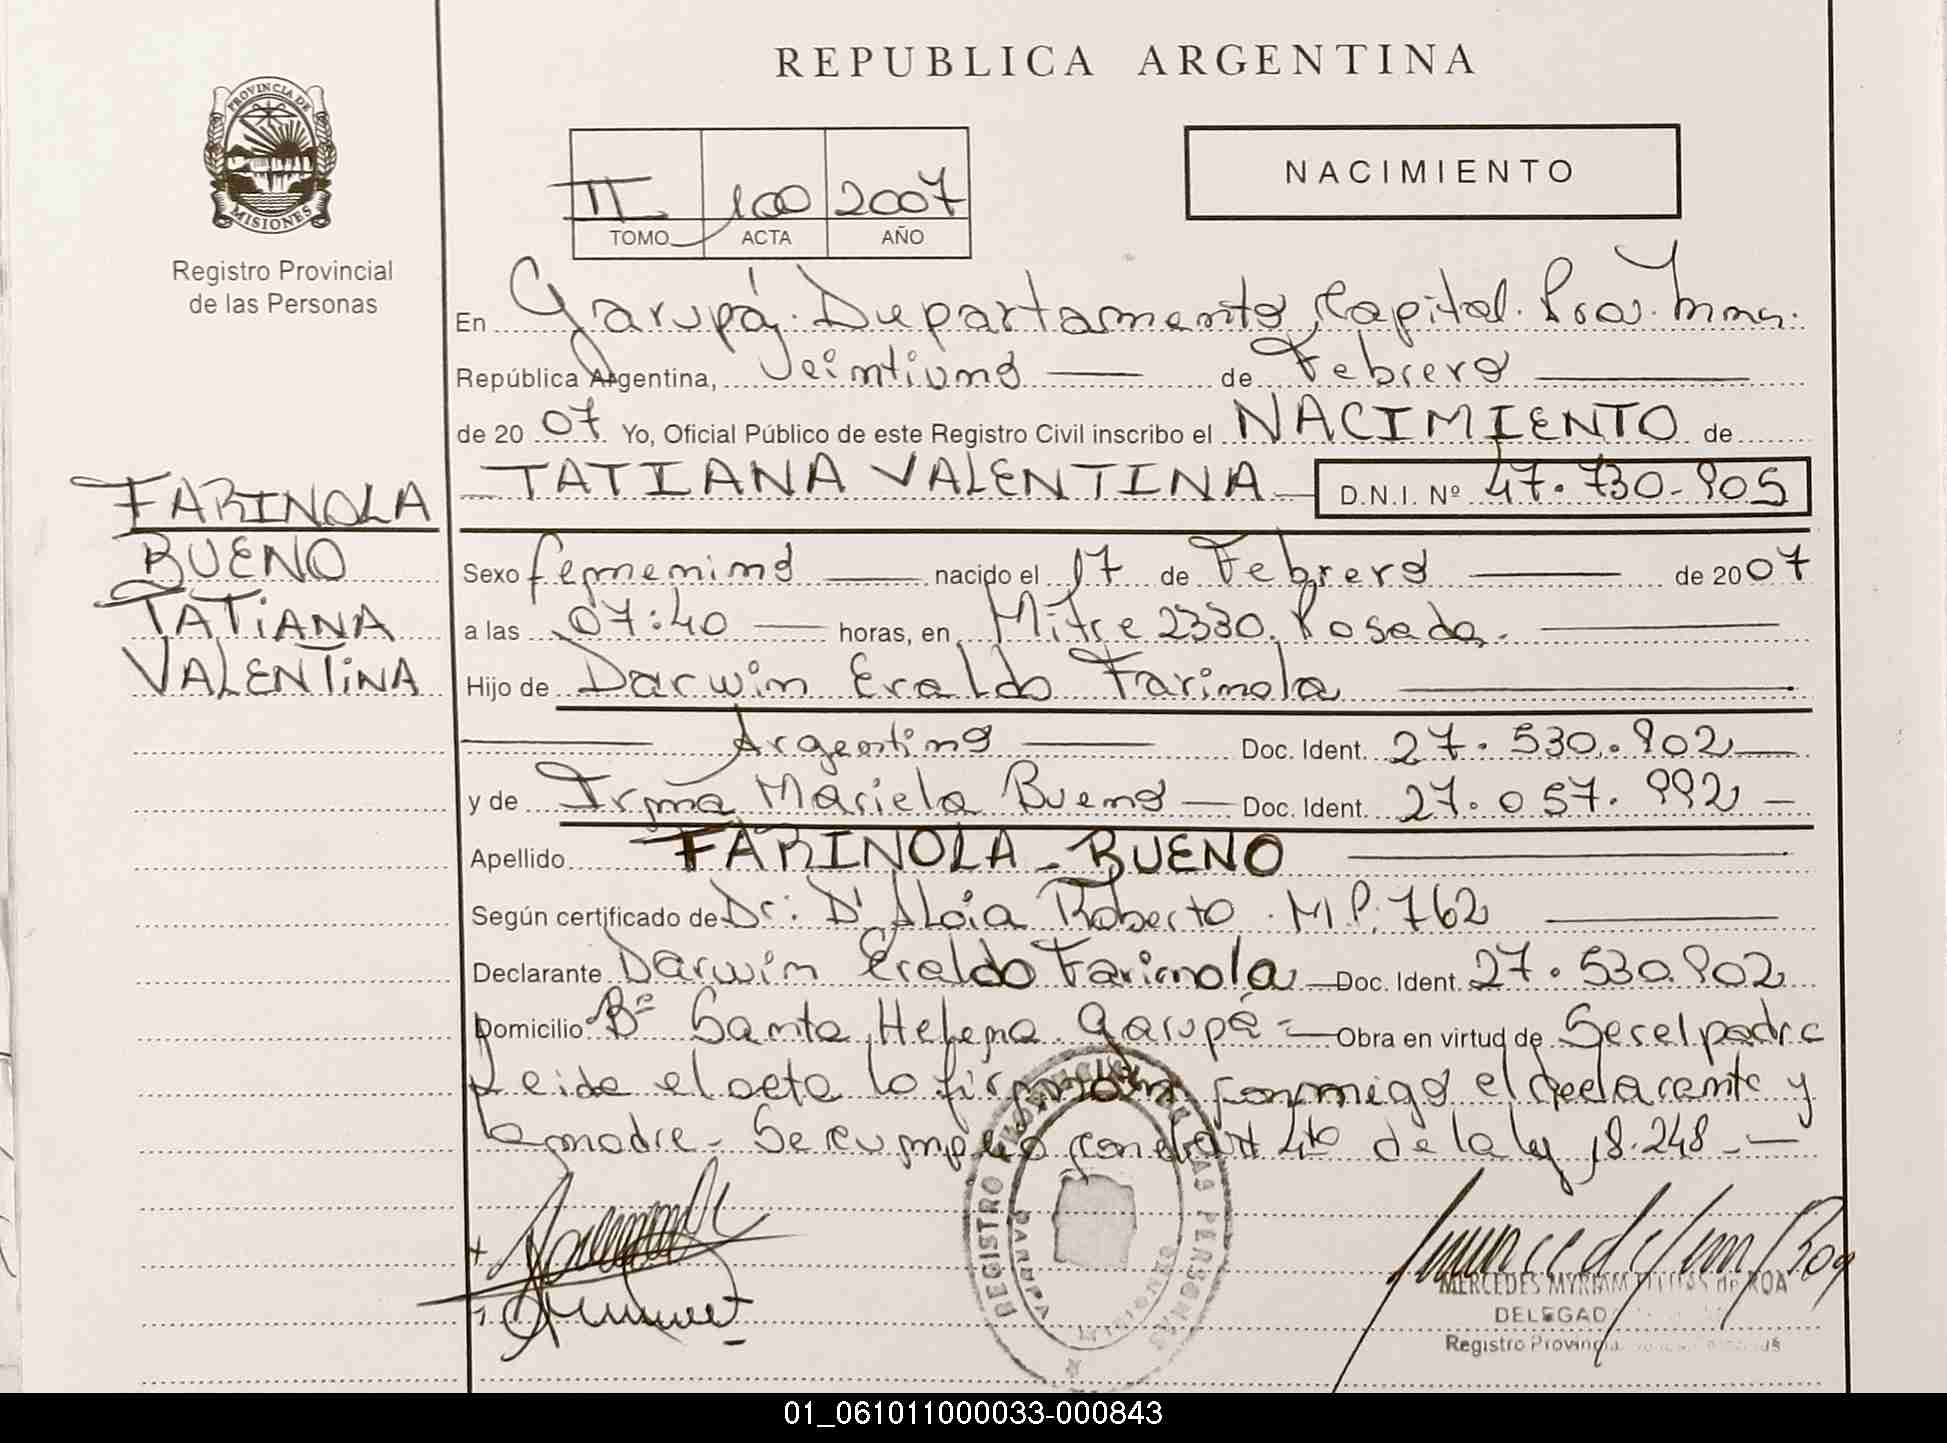 REPUBLICA ARGENTINA
PROVINCIA DE
MISIONES
Registro Provincial
de las Personas
II 100 2007
TOMO ACTA AÑO
NACIMIENTO
En Garupá. Departamento Capital. Prov. Mnes.
República Argentina, Veintiuno de Febrero
de 2007 Yo, Oficial Público de este Registro Civil inscribo el NACIMIENTO de
TATIANA VALENTINA D.N.I. Nº 47.730.905
FARINOLA
BUENO
TATIANA
VALENTINA
Sexo femenino nacido el 17 de Febrero de 2007
a las 07:40 horas, en Mitre 2330. Posadas.
Hijo de Darwin Eraldo Farinola
Argentino Doc. Ident. 27.530.902
y de Irma Mariela Bueno Doc. Ident. 27.057.992
Apellido FARINOLA - BUENO
Según certificado de Dr: D'Aloia Roberto. M.P. 762
Declarante Darwin Eraldo Farinola Doc. Ident. 27.530.902
Domicilio Bº Santa Helena Garupá = Obra en virtud de Ser el padre
Leida el acta la firman conmigo el declarante y
la madre - Se cumplio con el art 4to de la ley 18.248 -
REGISTRO PROVINCIAL DE LAS PERSONAS
GARUPA
MISIONES
MERCEDES MYRIAM de ROA
DELEGADA
Registro Provincial de las Personas
01_061011000033-000843